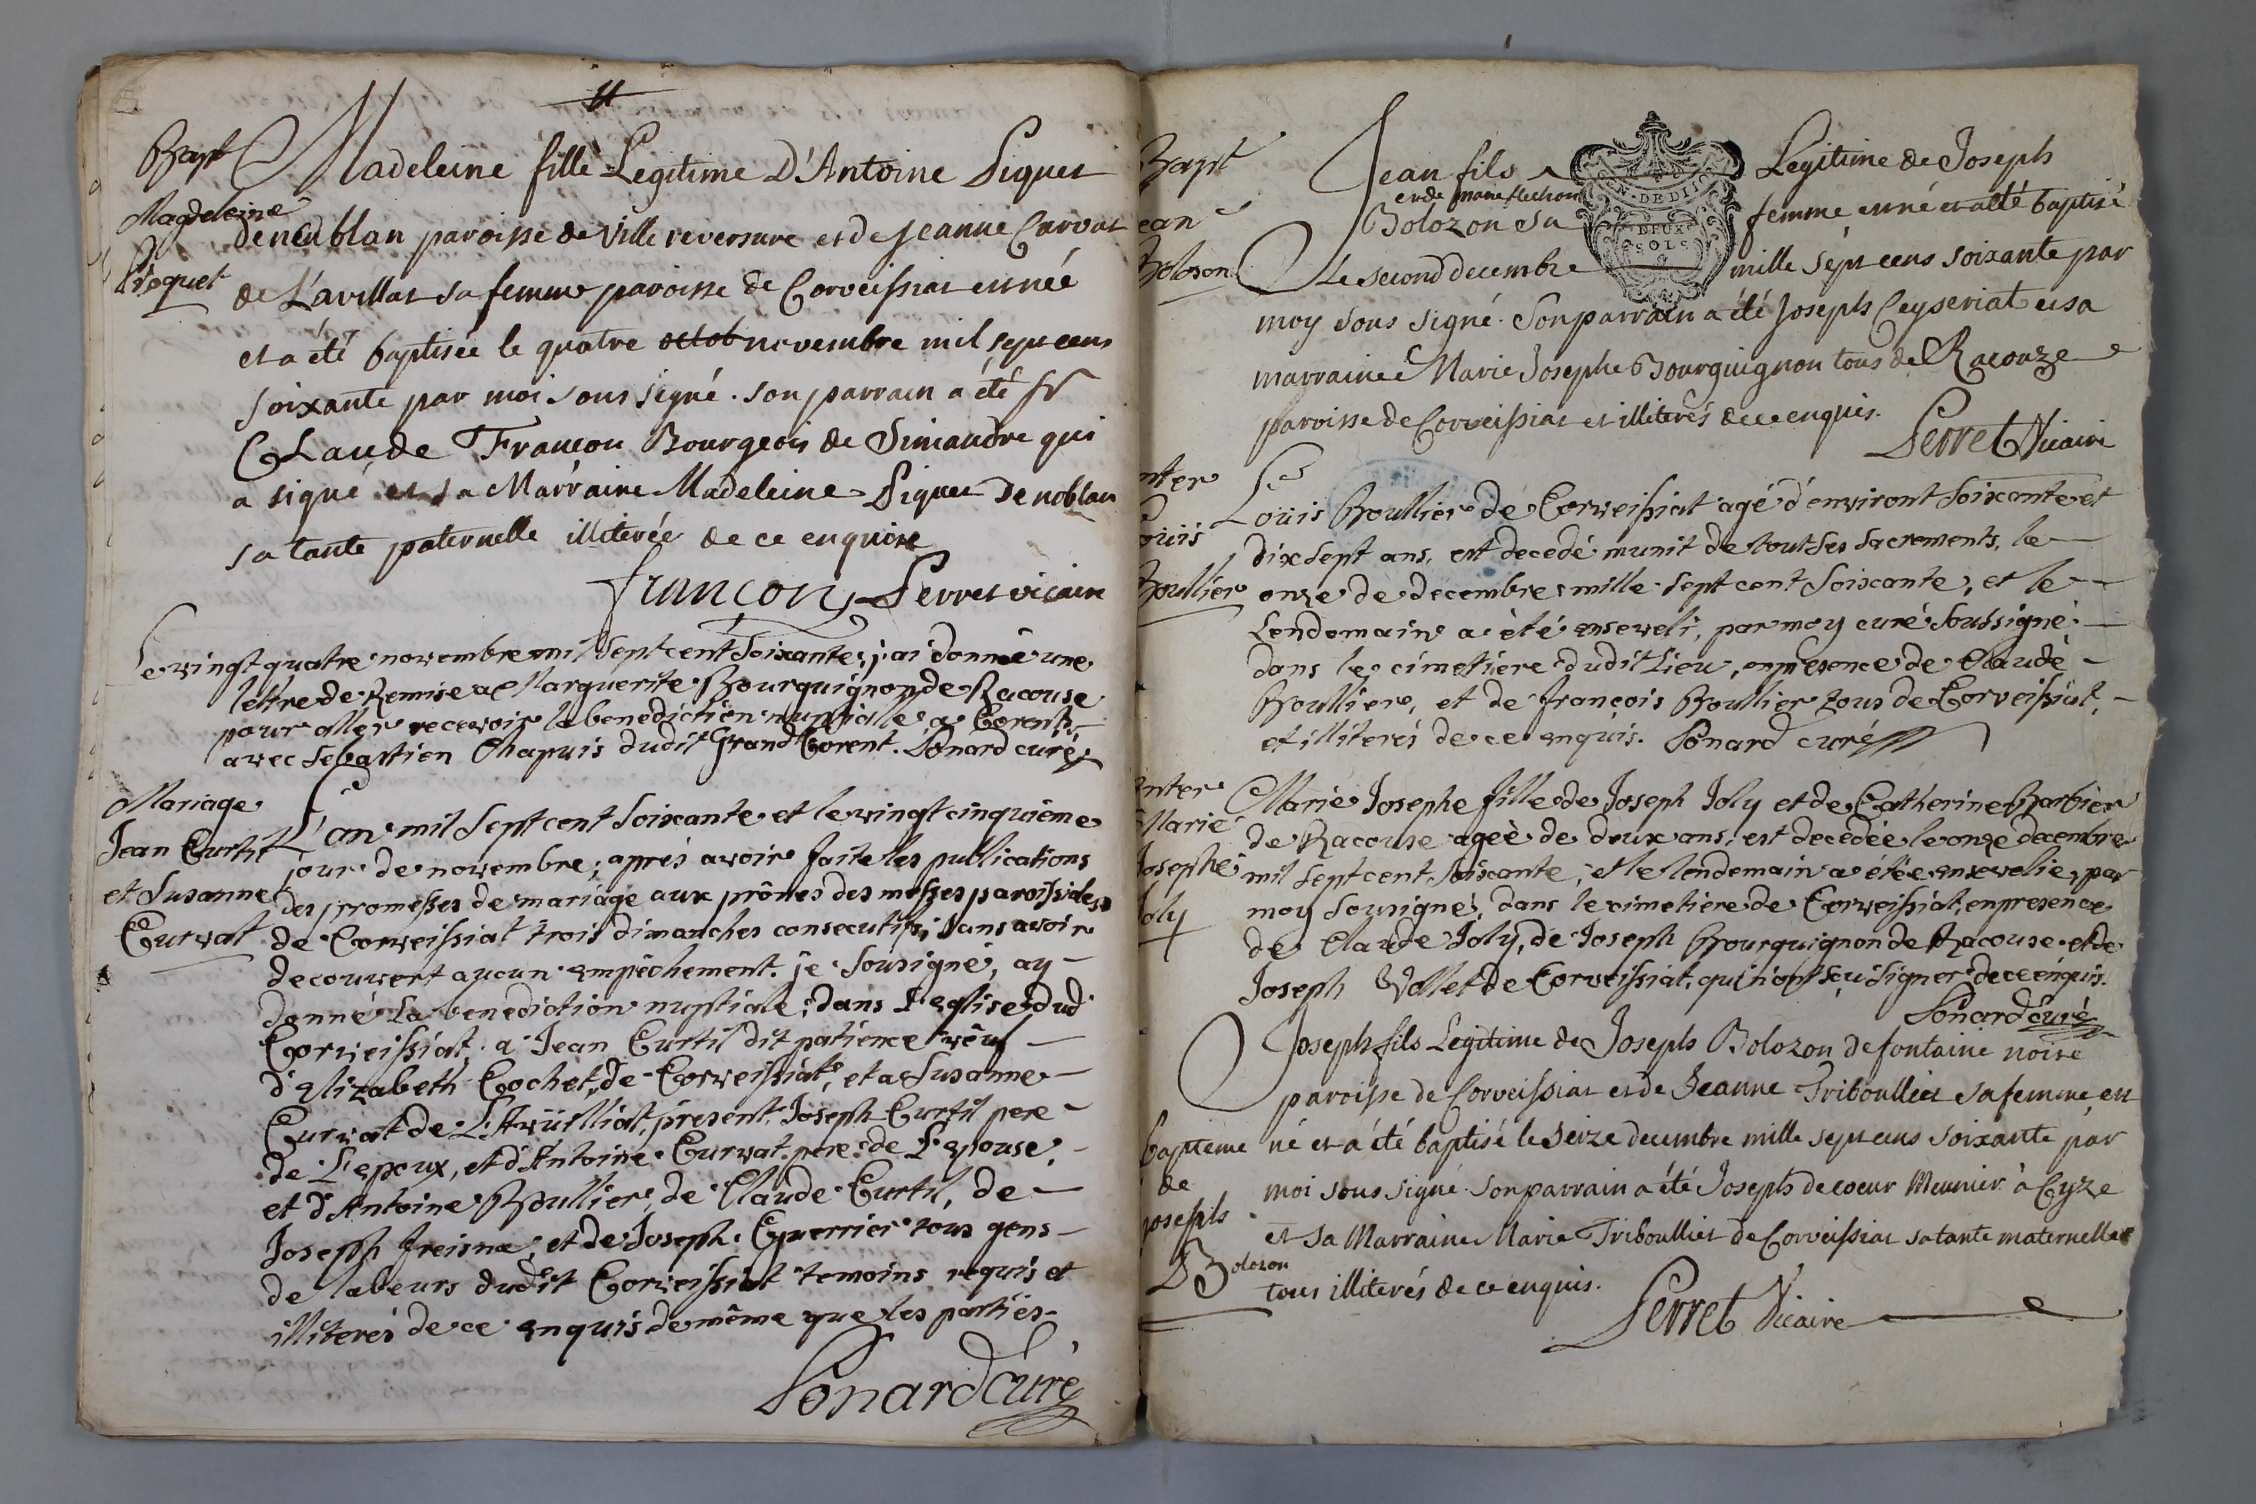 11
Bapt
Magdeleine
Piquet
Madeleine fille Legitime D'Antoine Piquet
de neublan paroisse de Ville reversure et de jeanne Curvat
de L'avillat sa femme paroisse de Corveissiat est née
et a été baptisée le quatre octob novembre mil sept cens
soixante par moi sous signé. son parrain a été sr
CLaude Françon Bourgeois de Simandre qui
a signé et sa Marraine Madeleine Piquet de noblan
sa tante paternelle illiterée de ce enquise
françon Perret vicaire
Le vingt quatre novembre mil sept cent soixante, j'ai donnée une
lettre de Remise a Marguerite Bourguignon de Racouse
pour aller recevoir la benediction nuptialle a Corent
avec Sebastien Chapuis dudit Grand Corent. Ponard curé
Mariage
Jean Curtil
et Susanne
Curvat
L'an mil sept cent soixante et le vingt cinquième
jour de novembre; après avoir faite les publications
des promesses de mariage aux prônes des messes paroissiales
de Corveissiat trois dimanches consecutifs; sans avoir
decouvert aucun empêchement. je sousigné, ay
donné la benediction nuptiale; dans l'eglise dud
Corveissiat, a Jean Curtil dit patience vëuf
d'Elizabeth Cochet, de Corveissiat, et a Susanne
Curvat de L'Avuilliat, present Joseph Curtil pere
de L'epoux, et d'Antoine Curvat pere de L'epouse,
et d'Antoine Boullier, de Claude Curtil, de
Joseph freisne, et de Joseph Guerrier tous gens
de labeurs dudit Corveissiat temoins requis et
illiterés de ce enquis de même que les parties
Ponard curé
Bapt
ean
Bolozon
Jean fils Legitime de Joseph
et de marie
Bolozon sa femme est né et a été baptisé
GEN. DE DIJON
DEUX
SOLS
Le second decembre mille sept cens soixante par
moy sous signé. Son parrain a été Joseph Ceyseriat et sa
marraine Marie Josephe Bourguignon tous de Racouze
paroisse de Corveissiat et illiterés de ce enquis.
Perret Vicaire
nter
Louis
Boullier
Louis Boullier de Corveissiat agé d'environt soixante et
dix sept ans, est decedé munit de tout ses sacrements, le
onze de decembre mille sept cent soixante, et le
Lendemain a été enseveli, par moy curé soussigné
dans le cimetiere dudit Lieu, en presence de Claude
Boullier, et de françois Boullier tous de Corveissiat,
et illiterés de ce enquis. Ponard curé
nter
Marie
Josephe
Joly
Marie Josephe fille de Joseph Joly et de Catherine Barbier
de Racouse ageè de deux ans, est decedée le onze decembre
mil sept cent soixante; et le lendemain a étée ensevelie, par
moy sousigné, dans le cimetiere de Corveissiat, en presence
de Claude Joly, de Joseph Bourguignon de Racouse et de
Joseph Vollet de Corveissiat, qui n'ont sçu signer de ce enquis.
Ponard curé
bapteme
de
joseph
Bolozon
Joseph fils Legitime de Joseph Bolozon de fontaine noire
paroisse de Corveissiat et de Jeanne Triboullet sa femme, est
né et a été baptisé le seize decembre mille sept cens soixante par
moi sous signé son parrain a été Joseph decoeur Meunier à Cyze
et sa Marraine Marie Triboullet de Corveissiat sa tante maternelle
tous illiterés de ce enquis.
Perret Vicaire